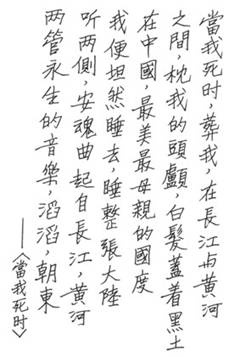 當我死时，葬我，在長江与黃河
之間，枕我的頭顱，白髮蓋着黑土
在中國，最美最母親的國度
我便坦然睡去，睡整張大陸
听两側，安魂曲起自長江，黃河
两管永生的音樂，滔滔，朝東
——〈當我死时〉